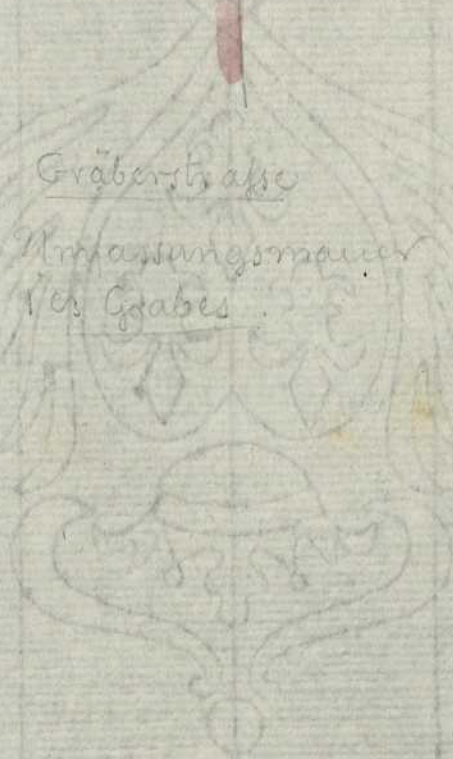 Gräberstrasse
Umfassungsmauer
des Grabes.